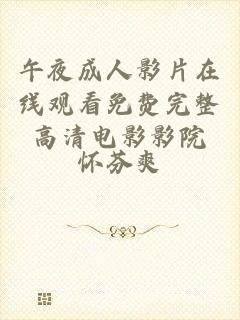 午夜成人影片在
线观看免费完整
高清电影影院
怀芬爽